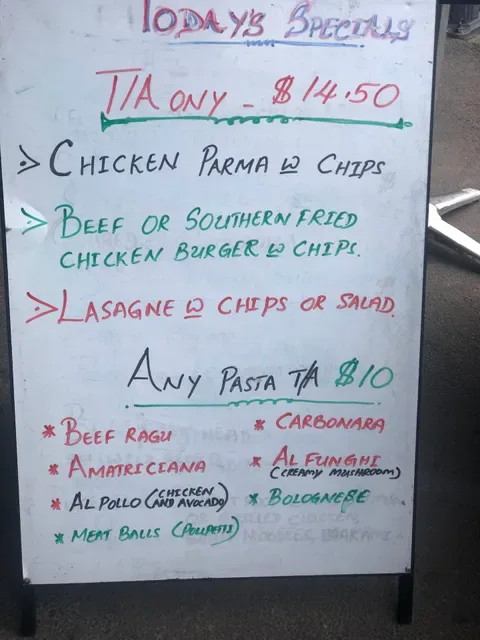 TODAY'S SPECIALS
T/A ONY - $14.50
> CHICKEN PARMA W CHIPS
> BEEF OR SOUTHERN FRIED
CHICKEN BURGER W CHIPS.
> LASAGNE W CHIPS OR SALAD.
ANY PASTA T/A $10
* BEEF RAGU
* AMATRICIANA
* AL POLLO (CHICKEN AND AVOCADO)
* MEAT BALLS (POLLPETTS)
* CARBONARA
* AL FUNGHI
(CREAMY MUSHROOM)
* BOLOGNESE